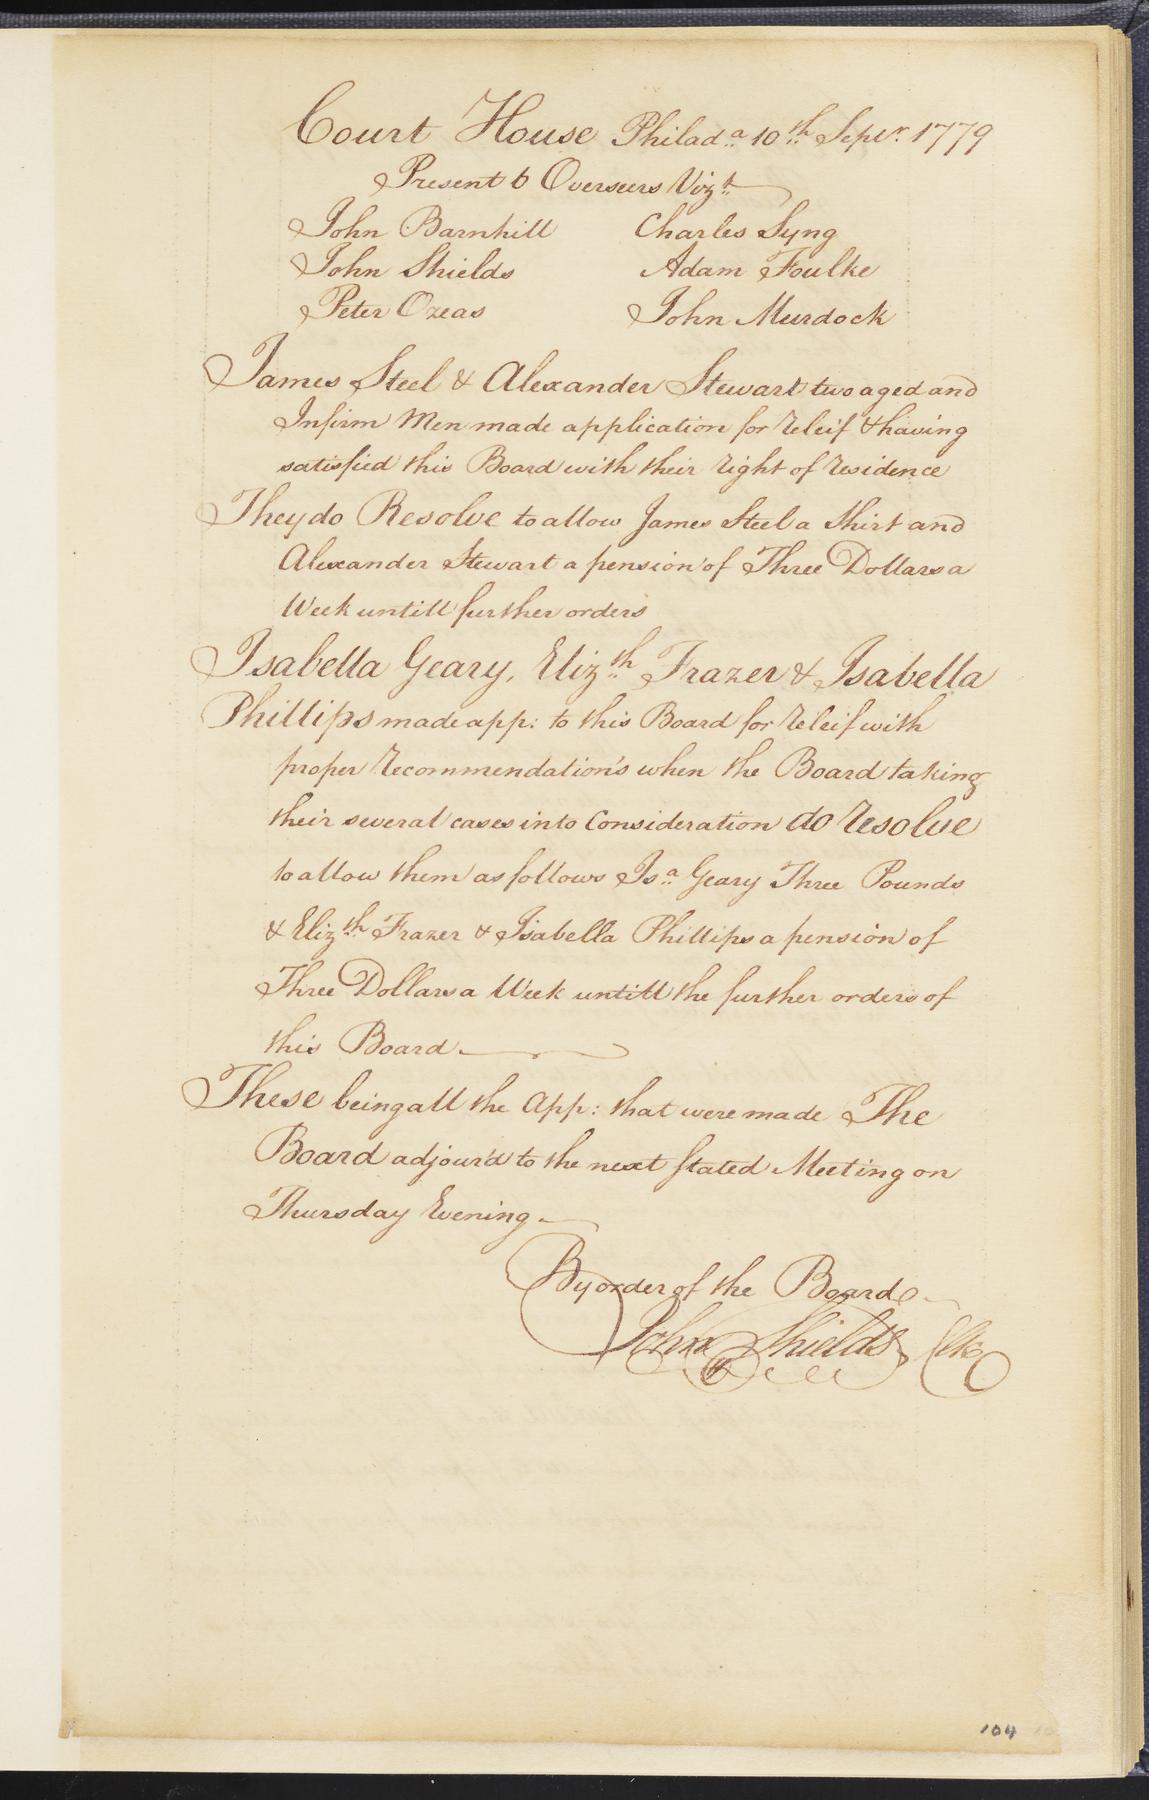 Court House Philada 10th Sepr. 1779
Present 6 Overseers Vizt
John Barnhill Charles Syng
John Shields Adam Foulke
Peter Ozeas John Murdock
James Steel & Alexander Stewart two aged and
Infirm Men made application for releif & having
satisfied this Board with their right of residence
They do Resolve to allow James Steel a Shirt and
Alexander Stewart a pension of Three Dollars a
Week untill further orders
Isabella Geary, Elizth Frazer & Isabella
Phillips made app: to this Board for releif with
proper recommendations when the Board taking
their several cases into Consideration do resolve
to allow them as follows Isa Geary Three Pounds
& Elizth Frazer & Isabella Phillips a pension of
Three Dollars a Week untill the further orders of
this Board
These being all the App: that were made The
Board adjour'd to the next Stated Meeting on
Thursday Evening
By order of the Board
John Shields Clk
104